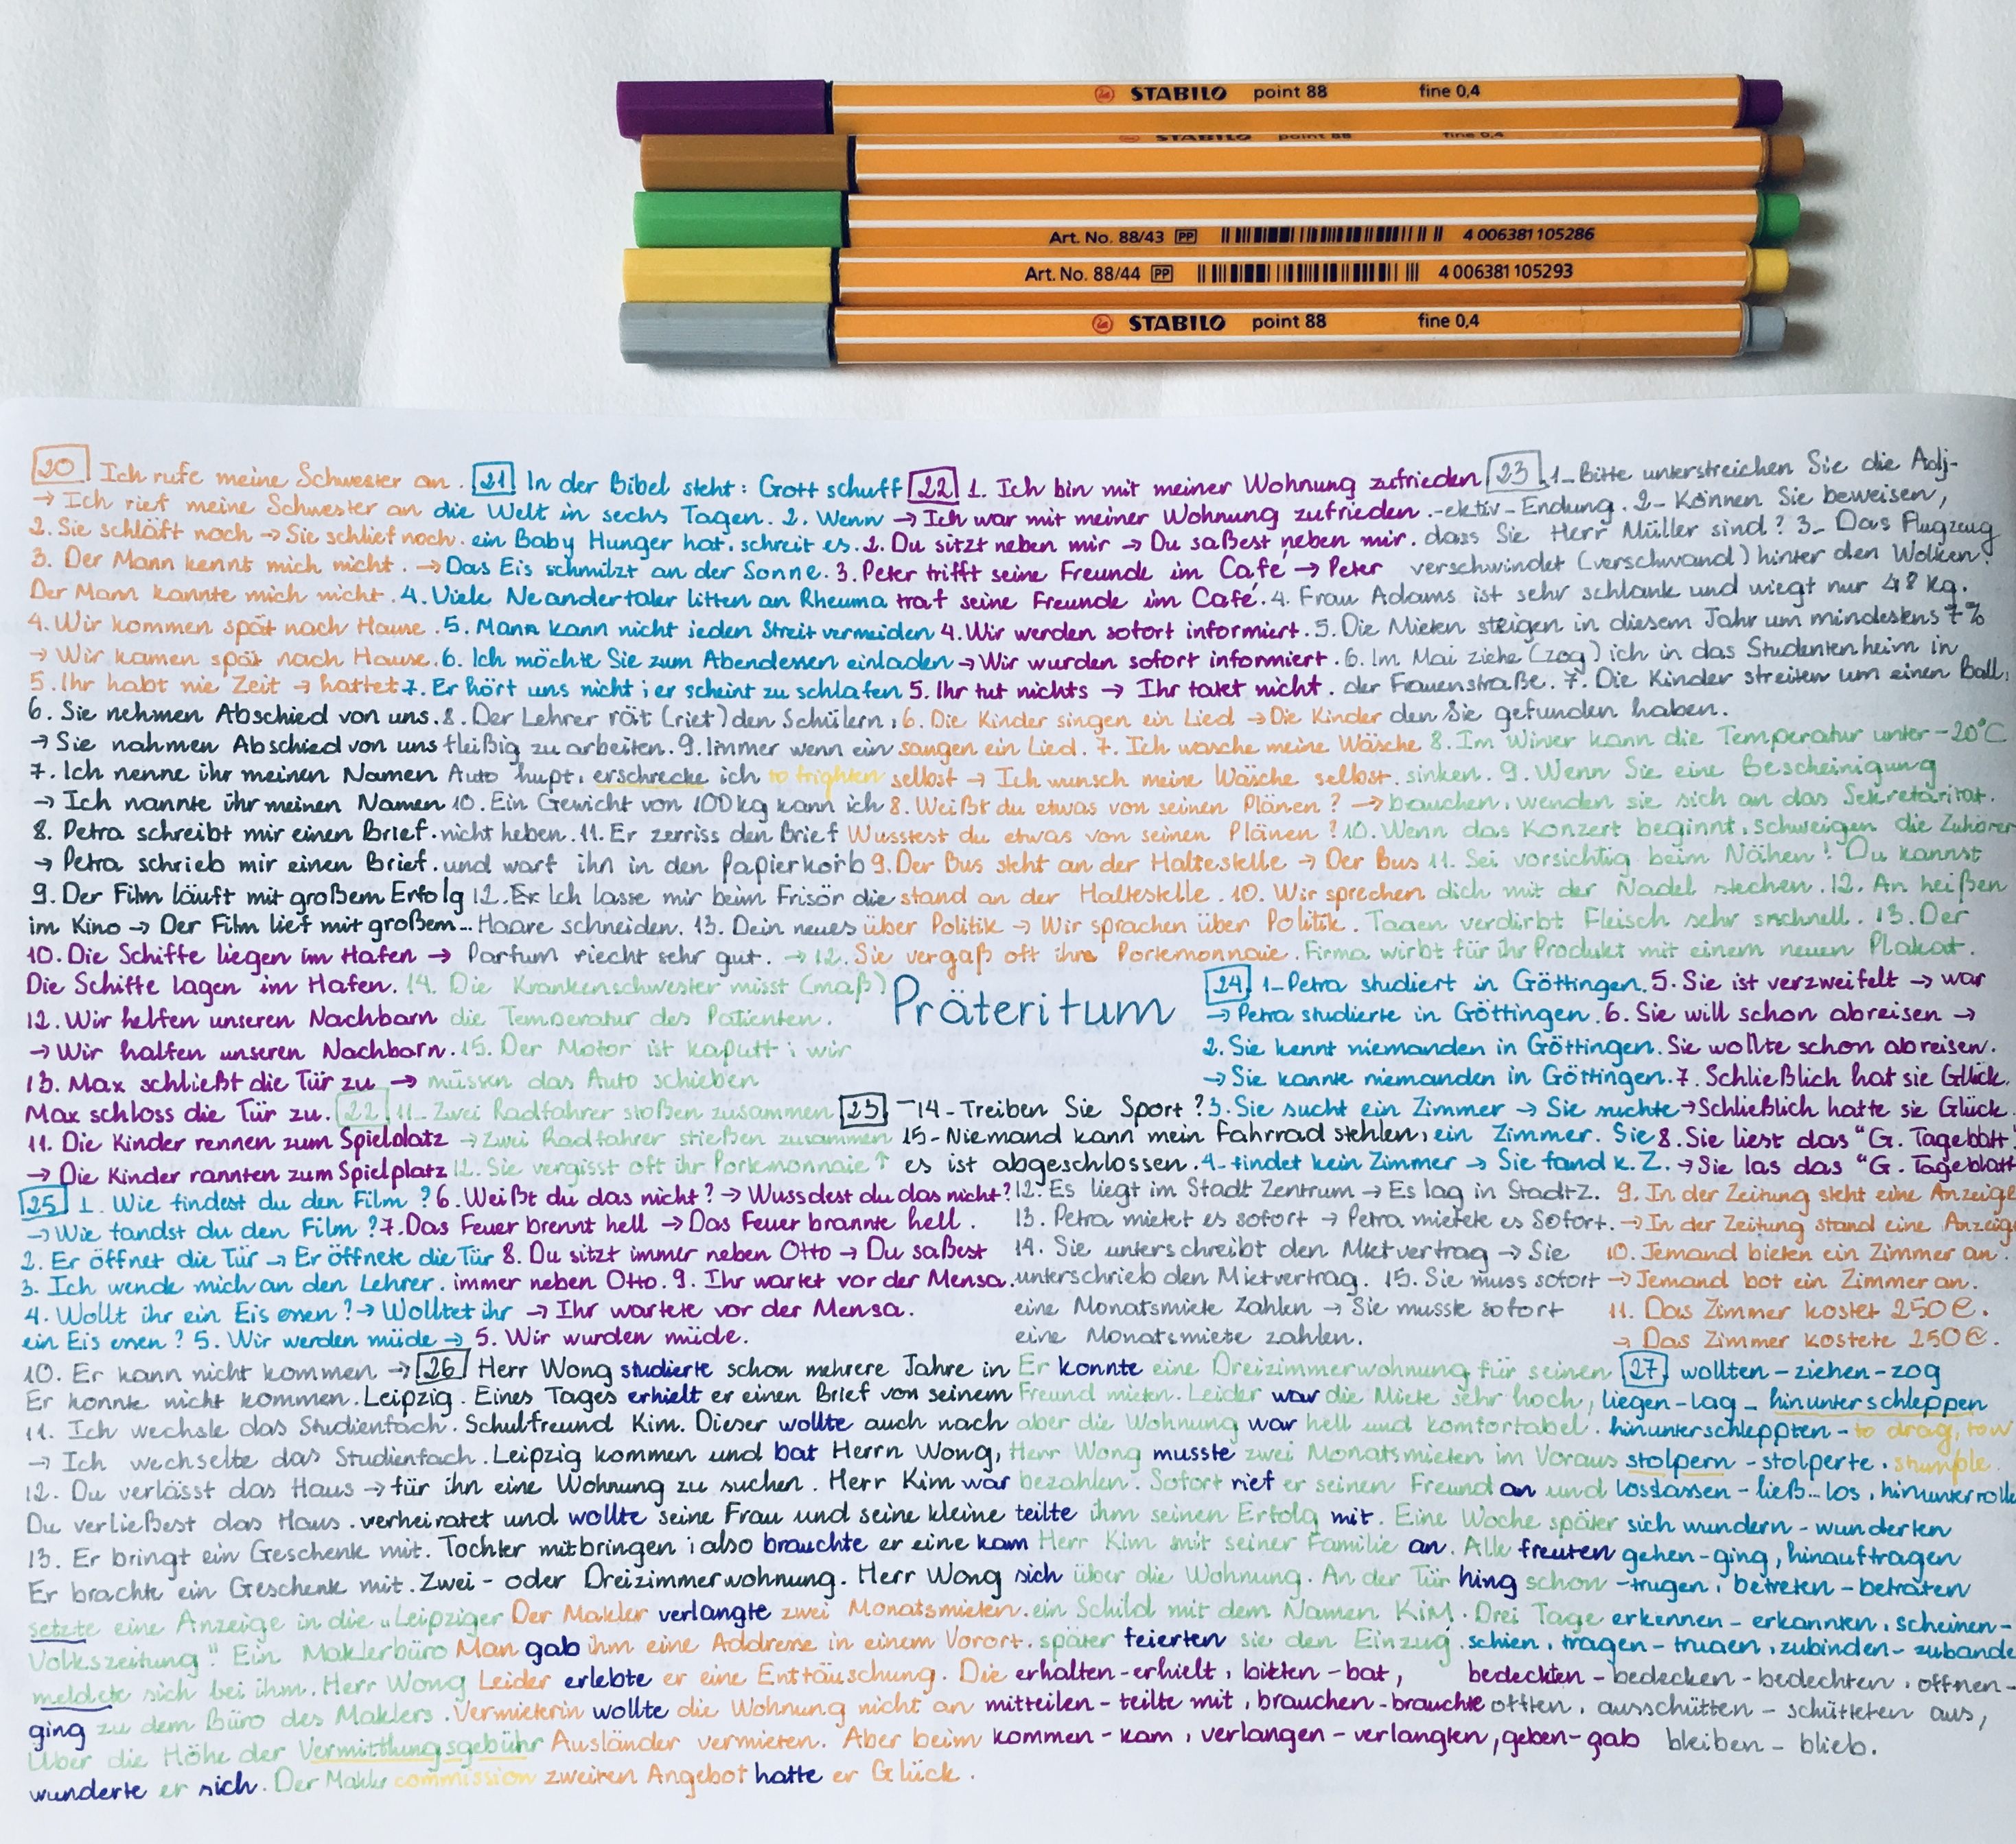 STABILO point 88 fine 0,4
STABILO point 88 fine 0,4
Art. No. 88/43 PP 4 006381 105286
Art. No. 88/44 PP 4 006381 105293
STABILO point 88 fine 0,4
20 Ich rufe meine Schwester an.
→ Ich rief meine Schwester an
2. Sie schläft noch → Sie schlief noch.
3. Der Mann kennt mich nicht. →
Der Mann kannte mich nicht.
4. Wir kommen spät nach Hause.
→ Wir kamen spät nach Hause.
5. Ihr habt nie Zeit → hattet
6. Sie nehmen Abschied von uns.
→ Sie nahmen Abschied von uns
7. Ich nenne ihr meinen Namen
→ Ich nannte ihr meinen Namen
8. Petra schreibt mir einen Brief.
→ Petra schrieb mir einen Brief.
9. Der Film läuft mit großem Erfolg
im Kino → Der Film lief mit großem...
10. Die Schiffe liegen im Hafen →
Die Schiffe lagen im Hafen.
12. Wir helfen unseren Nachbarn
→ Wir halfen unseren Nachbarn.
13. Max schließt die Tür zu →
Max schloss die Tür zu.
11. Die Kinder rennen zum Spielplatz
→ Die Kinder rannten zum Spielplatz
21 In der Bibel steht: Gott schuff
die Welt in sechs Tagen. 2. Wenn
ein Baby Hunger hat, schreit es.
Das Eis schmilzt an der Sonne.
4. Viele Neandertaler litten an Rheuma
5. Mann kann nicht jeden Streit vermeiden
6. Ich möchte Sie zum Abendessen einladen
7. Er hört uns nicht; er scheint zu schlafen
8. Der Lehrer rät (riet) den Schülern,
fleißig zu arbeiten. 9. Immer wenn ein
Auto hupt, erschrecke ich to frighten
10. Ein Gewicht von 100 kg kann ich
nicht heben. 11. Er zerriss den Brief
und warf ihn in den Papierkorb
12. Er Ich lasse mir beim Frisör die
Haare schneiden. 13. Dein neues
Parfum riecht sehr gut.
14. Die Krankenschwester misst (maß)
die Temperatur des Patienten.
15. Der Motor ist kaputt; wir
müssen das Auto schieben
22 1. Ich bin mit meiner Wohnung zufrieden
→ Ich war mit meiner Wohnung zufrieden.
2. Du sitzt neben mir → Du saßest neben mir.
3. Peter trifft seine Freunde im Café → Peter
traf seine Freunde im Café.
4. Wir werden sofort informiert.
→ Wir wurden sofort informiert.
5. Ihr tut nichts → Ihr tatet nicht.
6. Die Kinder singen ein Lied → Die Kinder
sangen ein Lied. 7. Ich wasche meine Wäsche
selbst → Ich wunsch meine Wäsche selbst.
8. Weißt du etwas von seinen Plänen? →
Wusstest du etwas von seinen Plänen?
9. Der Bus steht an der Haltestelle → Der Bus
stand an der Haltestelle. 10. Wir sprechen
über Politik → Wir sprachen über Politik.
→ 12. Sie vergaß oft ihre Portemonnaie.
22 11- Zwei Radfahrer stoßen zusammen
→ Zwei Radfahrer stießen zusammen
12. Sie vergisst oft ihr Portemonnaie ↑
23 1- Bitte unterstreichen Sie die Adj-
-ektiv-Endung. 2- Können Sie beweisen,
dass Sie Herr Müller sind? 3- Das Flugzeug
verschwindet (verschwand) hinter den Wolken.
4. Frau Adams ist sehr schlank und wiegt nur 48 kg.
5. Die Mieten steigen in diesem Jahr um mindestens 7%
6. Im Mai ziehe (zog) ich in das Studentenheim in
der Frauenstraße. 7. Die Kinder streiten um einen Ball,
den Sie gefunden haben.
8. Im Winter kann die Temperatur unter -20°C
sinken. 9. Wenn Sie eine Bescheinigung
brauchen, wenden sie sich an das Sekretäriat.
10. Wenn das Konzert beginnt, schweigen die Zuhörer
11. Sei vorsichtig beim Nähen! Du kannst
dich mit der Nadel stechen. 12. An heißen
Tagen verdirbt Fleisch sehr schnell. 13. Der
Firma wirbt für ihr Produkt mit einem neuen Plakat.
Präteritum
23 -14- Treiben Sie Sport?
15- Niemand kann mein Fahrrad stehlen,
es ist abgeschlossen.
24 1- Petra studiert in Göttingen.
→ Petra studierte in Göttingen.
2. Sie kennt niemanden in Göttingen.
→ Sie kannte niemanden in Göttingen.
3. Sie sucht ein Zimmer → Sie suchte
ein Zimmer. Sie
4- findet kein Zimmer → Sie fand k. Z.
5. Sie ist verzweifelt → war
6. Sie will schon abreisen →
Sie wollte schon abreisen.
7. Schließlich hat sie Glück.
→ Schließlich hatte sie Glück
8. Sie liest das "G. Tageblatt"
→ Sie las das "G. Tageblatt
9. In der Zeitung steht eine Anzeige
→ In der Zeitung stand eine Anzeig
10. Jemand bieten ein Zimmer an.
→ Jemand bot ein Zimmer an.
11. Das Zimmer kostet 250€.
→ Das Zimmer kostete 250€.
12. Es liegt im Stadt Zentrum → Es lag in Stadt Z.
13. Petra mietet es sofort → Petra mietete es Sofort.
14. Sie unterschreibt den Mietvertrag → Sie
unterschrieb den Mietvertrag. 15. Sie muss sofort
eine Monatsmiete zahlen → Sie musste sofort
eine Monatsmiete zahlen.
25 1. Wie findest du den Film?
→ Wie fandst du den Film?
2. Er öffnet die Tür → Er öffnete die Tür
3. Ich wende mich an den Lehrer.
4. Wollt ihr ein Eis essen? → Wolltet ihr
ein Eis essen? 5. Wir werden müde →
6. Weißt du das nicht? → Wussdest du das nicht?
7. Das Feuer brennt hell → Das Feuer brannte hell.
8. Du sitzt immer neben Otto → Du saßest
immer neben Otto. 9. Ihr wartet vor der Mensa.
→ Ihr wartete vor der Mensa.
5. Wir wurden müde.
10. Er kann nicht kommen →
Er konnte nicht kommen.
11. Ich wechsle das Studienfach.
→ Ich wechselte das Studienfach.
12. Du verlässt das Haus →
Du verließest das Haus.
13. Er bringt ein Geschenk mit.
Er brachte ein Geschenk mit.
26 Herr Wong studierte schon mehrere Jahre in
Leipzig. Eines Tages erhielt er einen Brief von seinem
Schulfreund Kim. Dieser wollte auch nach
Leipzig kommen und bat Herrn Wong,
für ihn eine Wohnung zu suchen. Herr Kim war
verheiratet und wollte seine Frau und seine kleine
Tochter mitbringen; also brauchte er eine
Zwei- oder Dreizimmerwohnung. Herr Wong
setzte eine Anzeige in die „Leipziger
Volkszeitung." Ein Maklerbüro
meldete sich bei ihm. Herr Wong
ging zu dem Büro des Maklers.
Über die Höhe der Vermittlungsgebühr
wunderte er sich. Der Makler commission
Der Makler verlangte zwei Monatsmieten.
Man gab ihm eine Addresse in einem Vorort.
Leider erlebte er eine Enttäuschung. Die
Vermieterin wollte die Wohnung nicht an
Ausländer vermieten. Aber beim
zweiten Angebot hatte er Glück.
Er konnte eine Dreizimmerwohnung für seinen
Freund mieten. Leider war die Miete sehr hoch,
aber die Wohnung war hell und komfortabel.
Herr Wong musste zwei Monatsmieten im Voraus
bezahlen. Sofort rief er seinen Freund an und
teilte ihm seinen Erfolg mit. Eine Woche später
kam Herr Kim mit seiner Familie an. Alle freuten
sich über die Wohnung. An der Tür hing schon
ein Schild mit dem Namen KiM. Drei Tage
später feierten sie den Einzug.
erhalten-erhielt, bitten-bat,
mitteilen-teilte mit, brauchen-brauchte
kommen-kam, verlangen-verlangten, geben-gab
27 wollten-ziehen-zog
liegen-lag- hinunterschleppen
hinunterschleppten- to drag, tow
stolpern-stolperte. stumple
losslassen-ließ...los, hinunterrolle
sich wundern-wunderten
gehen-ging, hinauftragen
-trugen, betreten-betraten
erkennen-erkannten, scheinen-
schien, tragen-trugen, zubinden-zubande
bedeckten-bedecken-bedechten, öffnen-
öfften, ausschütten-schütteten aus,
bleiben-blieb.